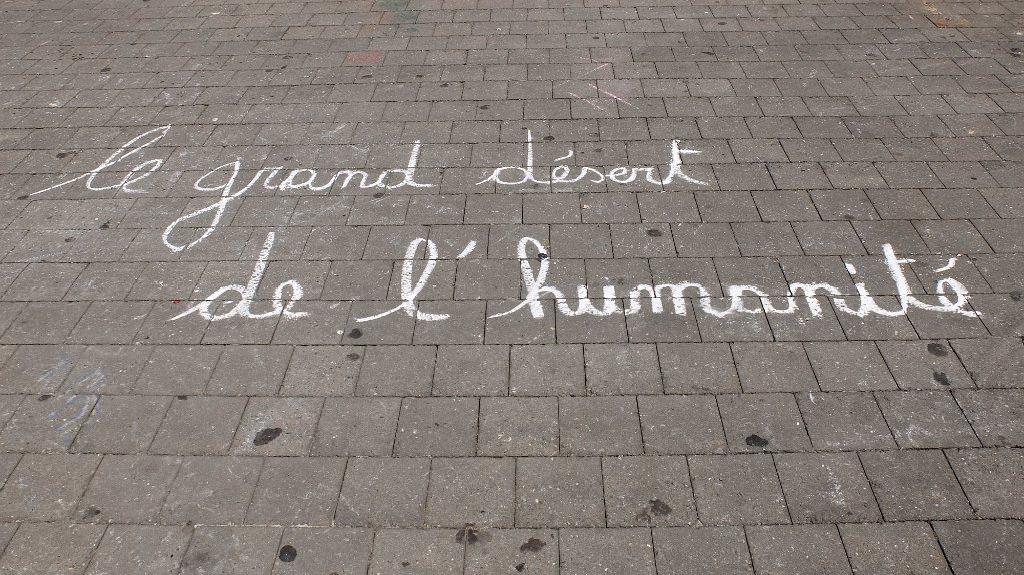 le grand désert
de l'humanité